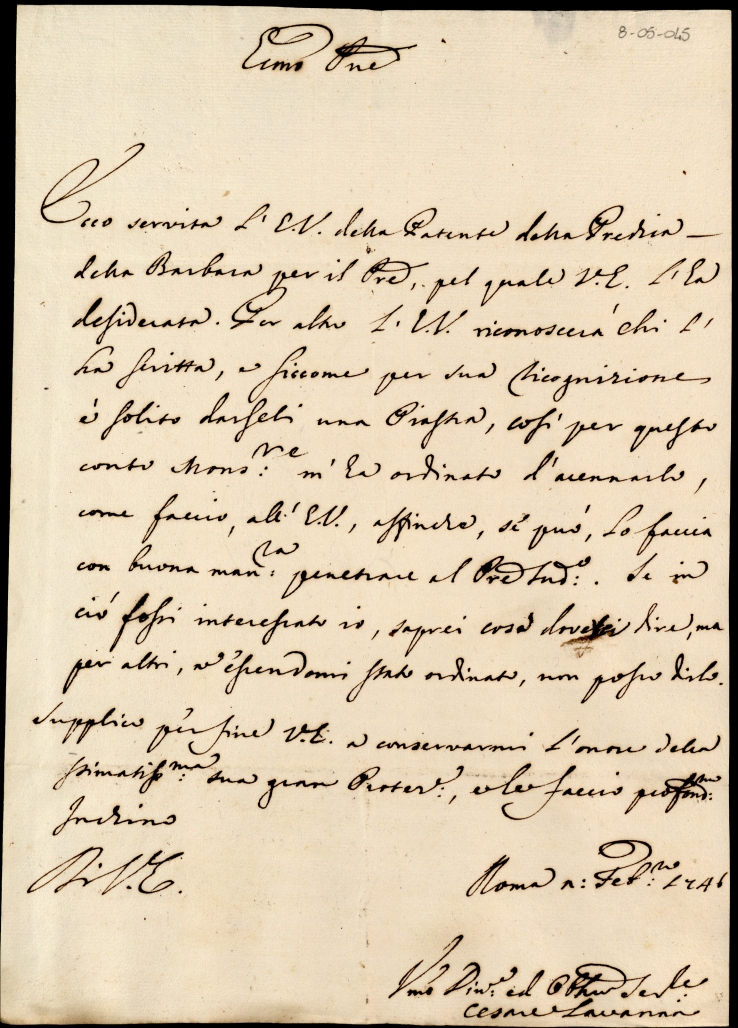 8-05-045
Ecmo Pne
Ecco servita L' E.V. della Patente della Predica
della Barbara per il Pred, pel quale V.E. l'ha
desiderata. Per altro L'E.V. riconoscerà chi l'
ha scritta, e siccome per sua ricognizione
è solito darseli una Piastra, così per questo
conto Mons:re m'ha ordinato d'acennarlo,
come faccio, all' E.V., affinche, se può, lo faccia
con buona man:ra penetrare al Pred Sud:o. Se in
ciò fossi interessato io, saprei cosa dovessi dire, ma
per altri, ed essendomi stato ordinato, non posso dirlo.
Supplico per fine V.E. a conservarmi l'onore della
stimatiss:ma sua gran Protez:e, e le faccio profond:mo
Inchino
Di V.E.
Roma Feb:ro 1746
Vmo Div:o ed Obbmo Ser:le
Cesare